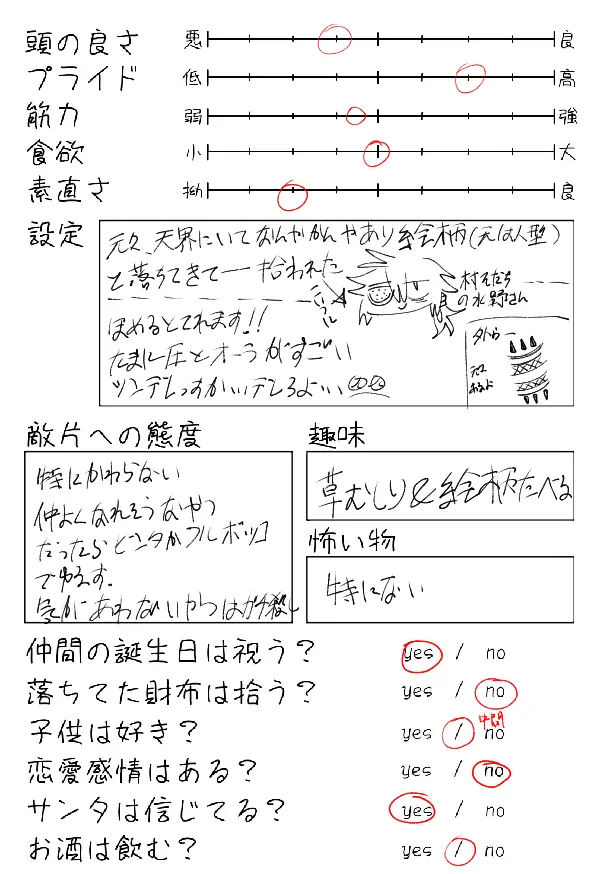 頭の良さ 悪 良
プライド 低 高
筋力 弱 強
食欲 小 大
素直さ 拗 良
設定
元々、天界にいてなんやかんやあり絵柄(元は人型)
で落ちてきて一拾われた
こいつに
村そだち
の水野さん
ほめるとてれます!!
たまに圧とオーラがすごい
外から
元々
敵片への態度
特にかわらない
仲よくなれそうなやつ
だったらビンタかフルボッコ
でゆるす。
気があわないやつはガチ殺し
趣味
草むしり&絵柄たべる
怖い物
特にない
仲間の誕生日は祝う? yes / no
落ちてた財布は拾う? yes / no
子供は好き? yes / no 中間
恋愛感情はある? yes / no
サンタは信じてる? yes / no
お酒は飲む? yes / no